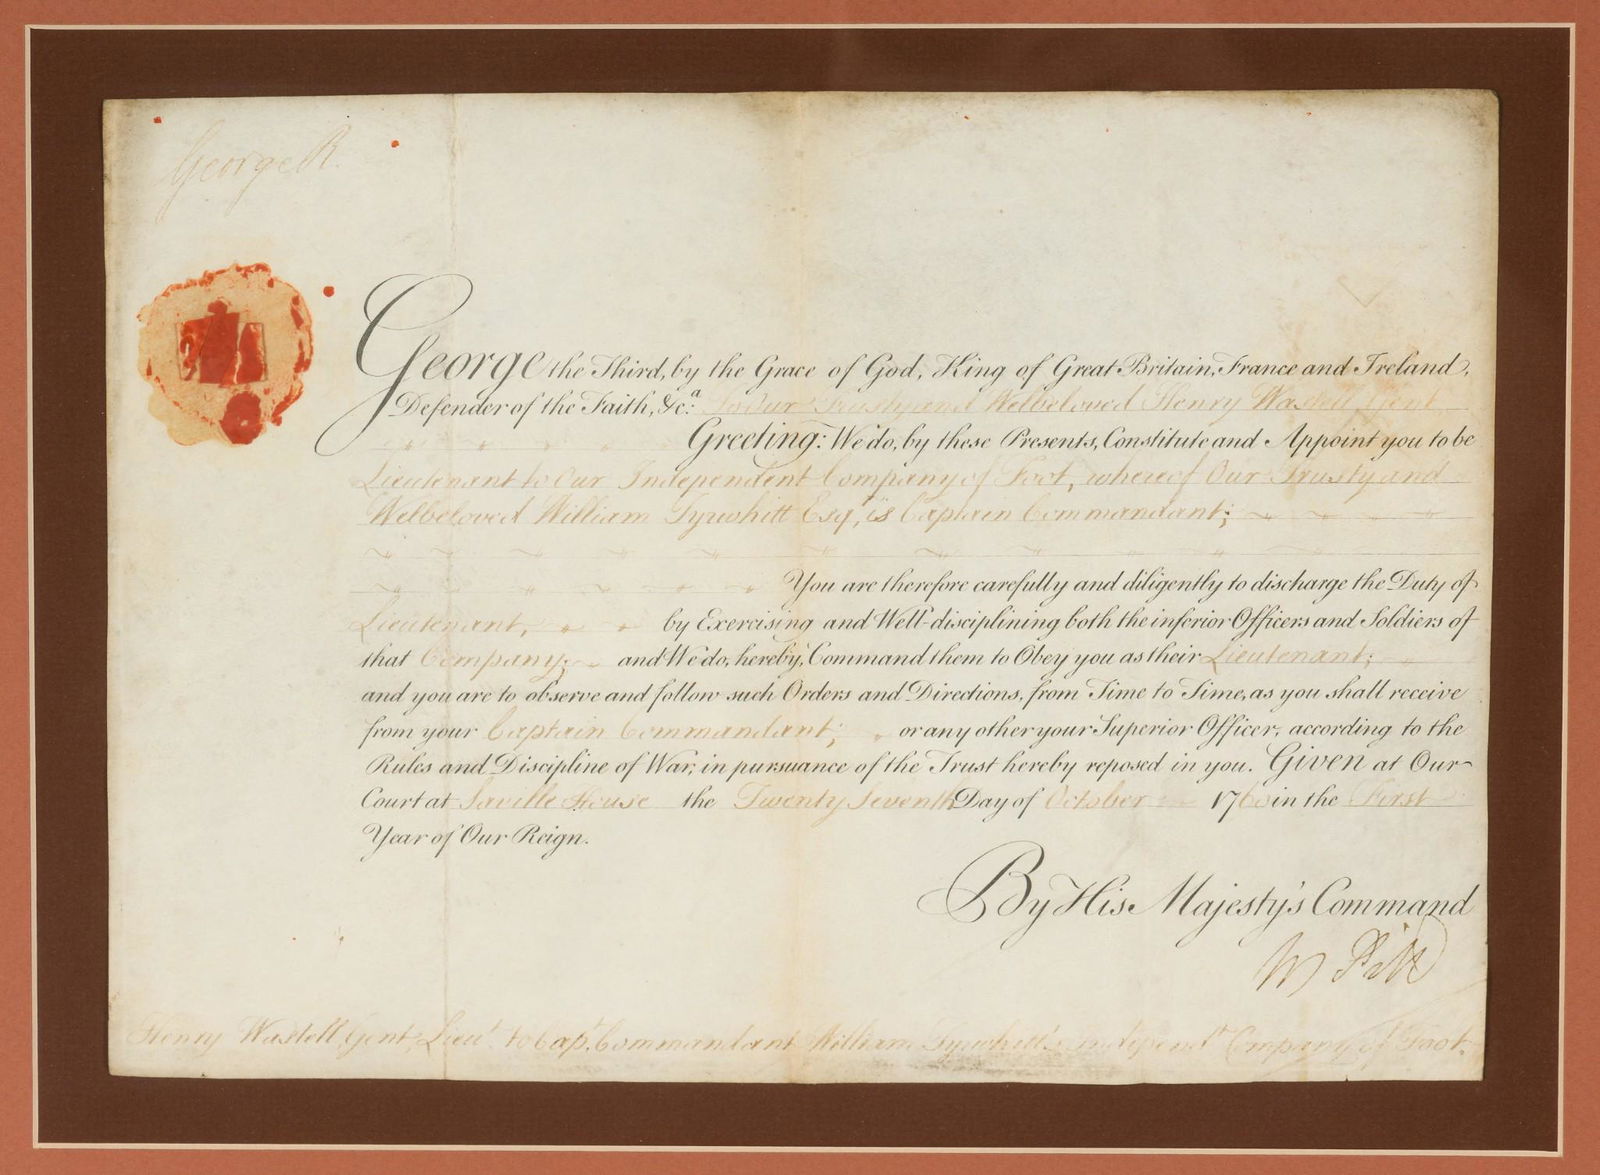 George R.
George the Third, by the Grace of God, King of Great Britain, France and Ireland,
Defender of the Faith, &c.ª To Our Trusty and Welbeloved Henry Wastell Gent
Greeting: We do, by these Presents, Constitute and Appoint you to be
Lieutenant to Our Independent Company of Foot, whereof Our Trusty and
Welbeloved William Tyrwhitt Esqr, is Captain Commandant;
You are therefore carefully and diligently to discharge the Duty of
Lieutenant, by Exercising and Well-disciplining both the inferior Officers and Soldiers of
that Company; and We do, hereby, Command them to Obey you as their Lieutenant;
and you are to observe and follow such Orders and Directions, from Time to Time, as you shall receive
from your Captain Commandant; or any other your Superior Officer, according to the
Rules and Discipline of War, in pursuance of the Trust hereby reposed in you. Given at Our
Court at Saville House the Twenty Seventh Day of October 1760 in the First
Year of Our Reign.
By His Majesty's Command
W Pitt
Henry Wastell, Gent, Lieut. to Capt. Commandant William Tyrwhitt's independt Company of Foot.